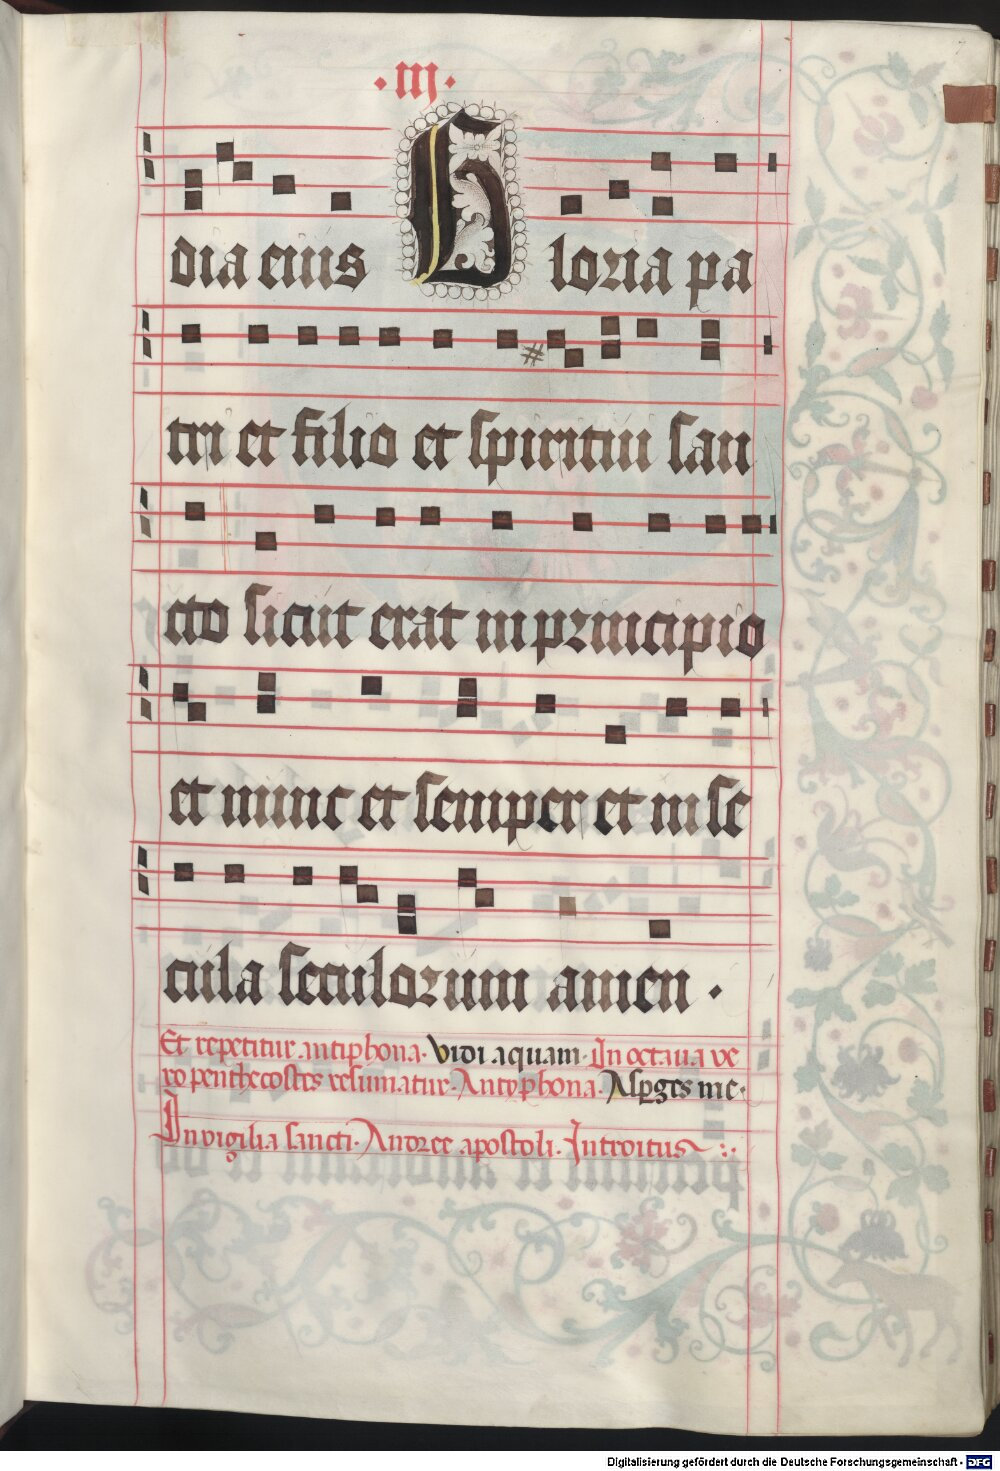 ·iij·
dia eius Gloria pa
tri et filio et spiritui san
cto sicut erat in principio
et nunc et semper et in se
cula seculorum amen ·
Et repetitur antiphona· Vidi aquam· In octaua ve
ro penthecostes resumatur· Antyphona· Asperges me·
In vigilia sancti· Andree apostoli· Introitus
Digitalisierung gefördert durch die Deutsche Forschungsgemeinschaft - DFG